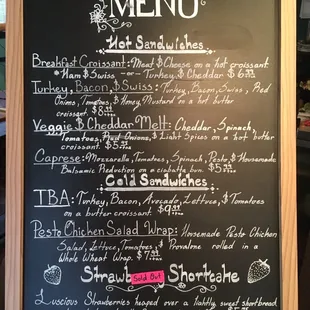 MENU
Hot Sandwiches
Breakfast Croissant: Meat & Cheese on a hot croissant
*Ham & Swiss -or- Turkey, & Cheddar $6
Turkey, Bacon, & Swiss: Turkey, Bacon, Swiss, Red
Onions, Tomatoes, & Honey Mustard on a hot butter
croissant. $8
Veggie & Cheddar Melt: Cheddar, Spinach,
Tomatoes, Red Onions, & Light Spices on a hot butter
croissant. $5
Caprese: Mozzarella, Tomatoes, Spinach, Pesto, & Housemade
Balsamic Reduction on a ciabatta bun. $5
Cold Sandwiches
TBA: Turkey, Bacon, Avocado, Lettuce, & Tomatoes
on a butter croissant. $9
Pesto Chicken Salad Wrap: Housemade Pesto Chicken
Salad, Lettuce, Tomatoes, & Provalone rolled in a
Whole Wheat Wrap. $7
Strawb Sold Out Shortcake
Luscious Strawberries heaped over a lightly sweet shortbread